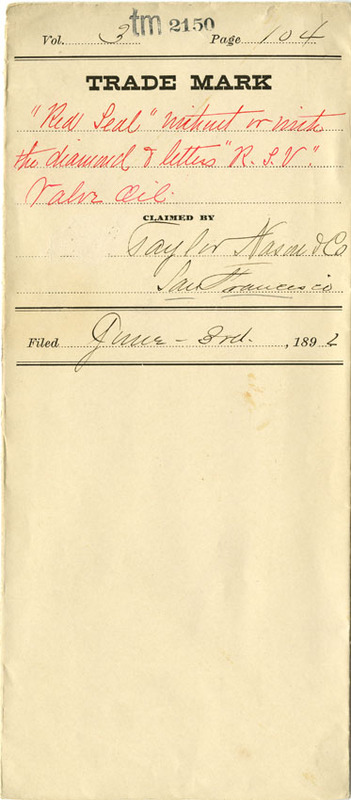 Vol. 3 tm 2150 Page 104
TRADE MARK
"Red Seal" without or with
the diamond & letters "R. S. V."
Valve Oil.
CLAIMED BY
Taylor Nason & Co
San Francisco
Filed June - 3rd. , 1892